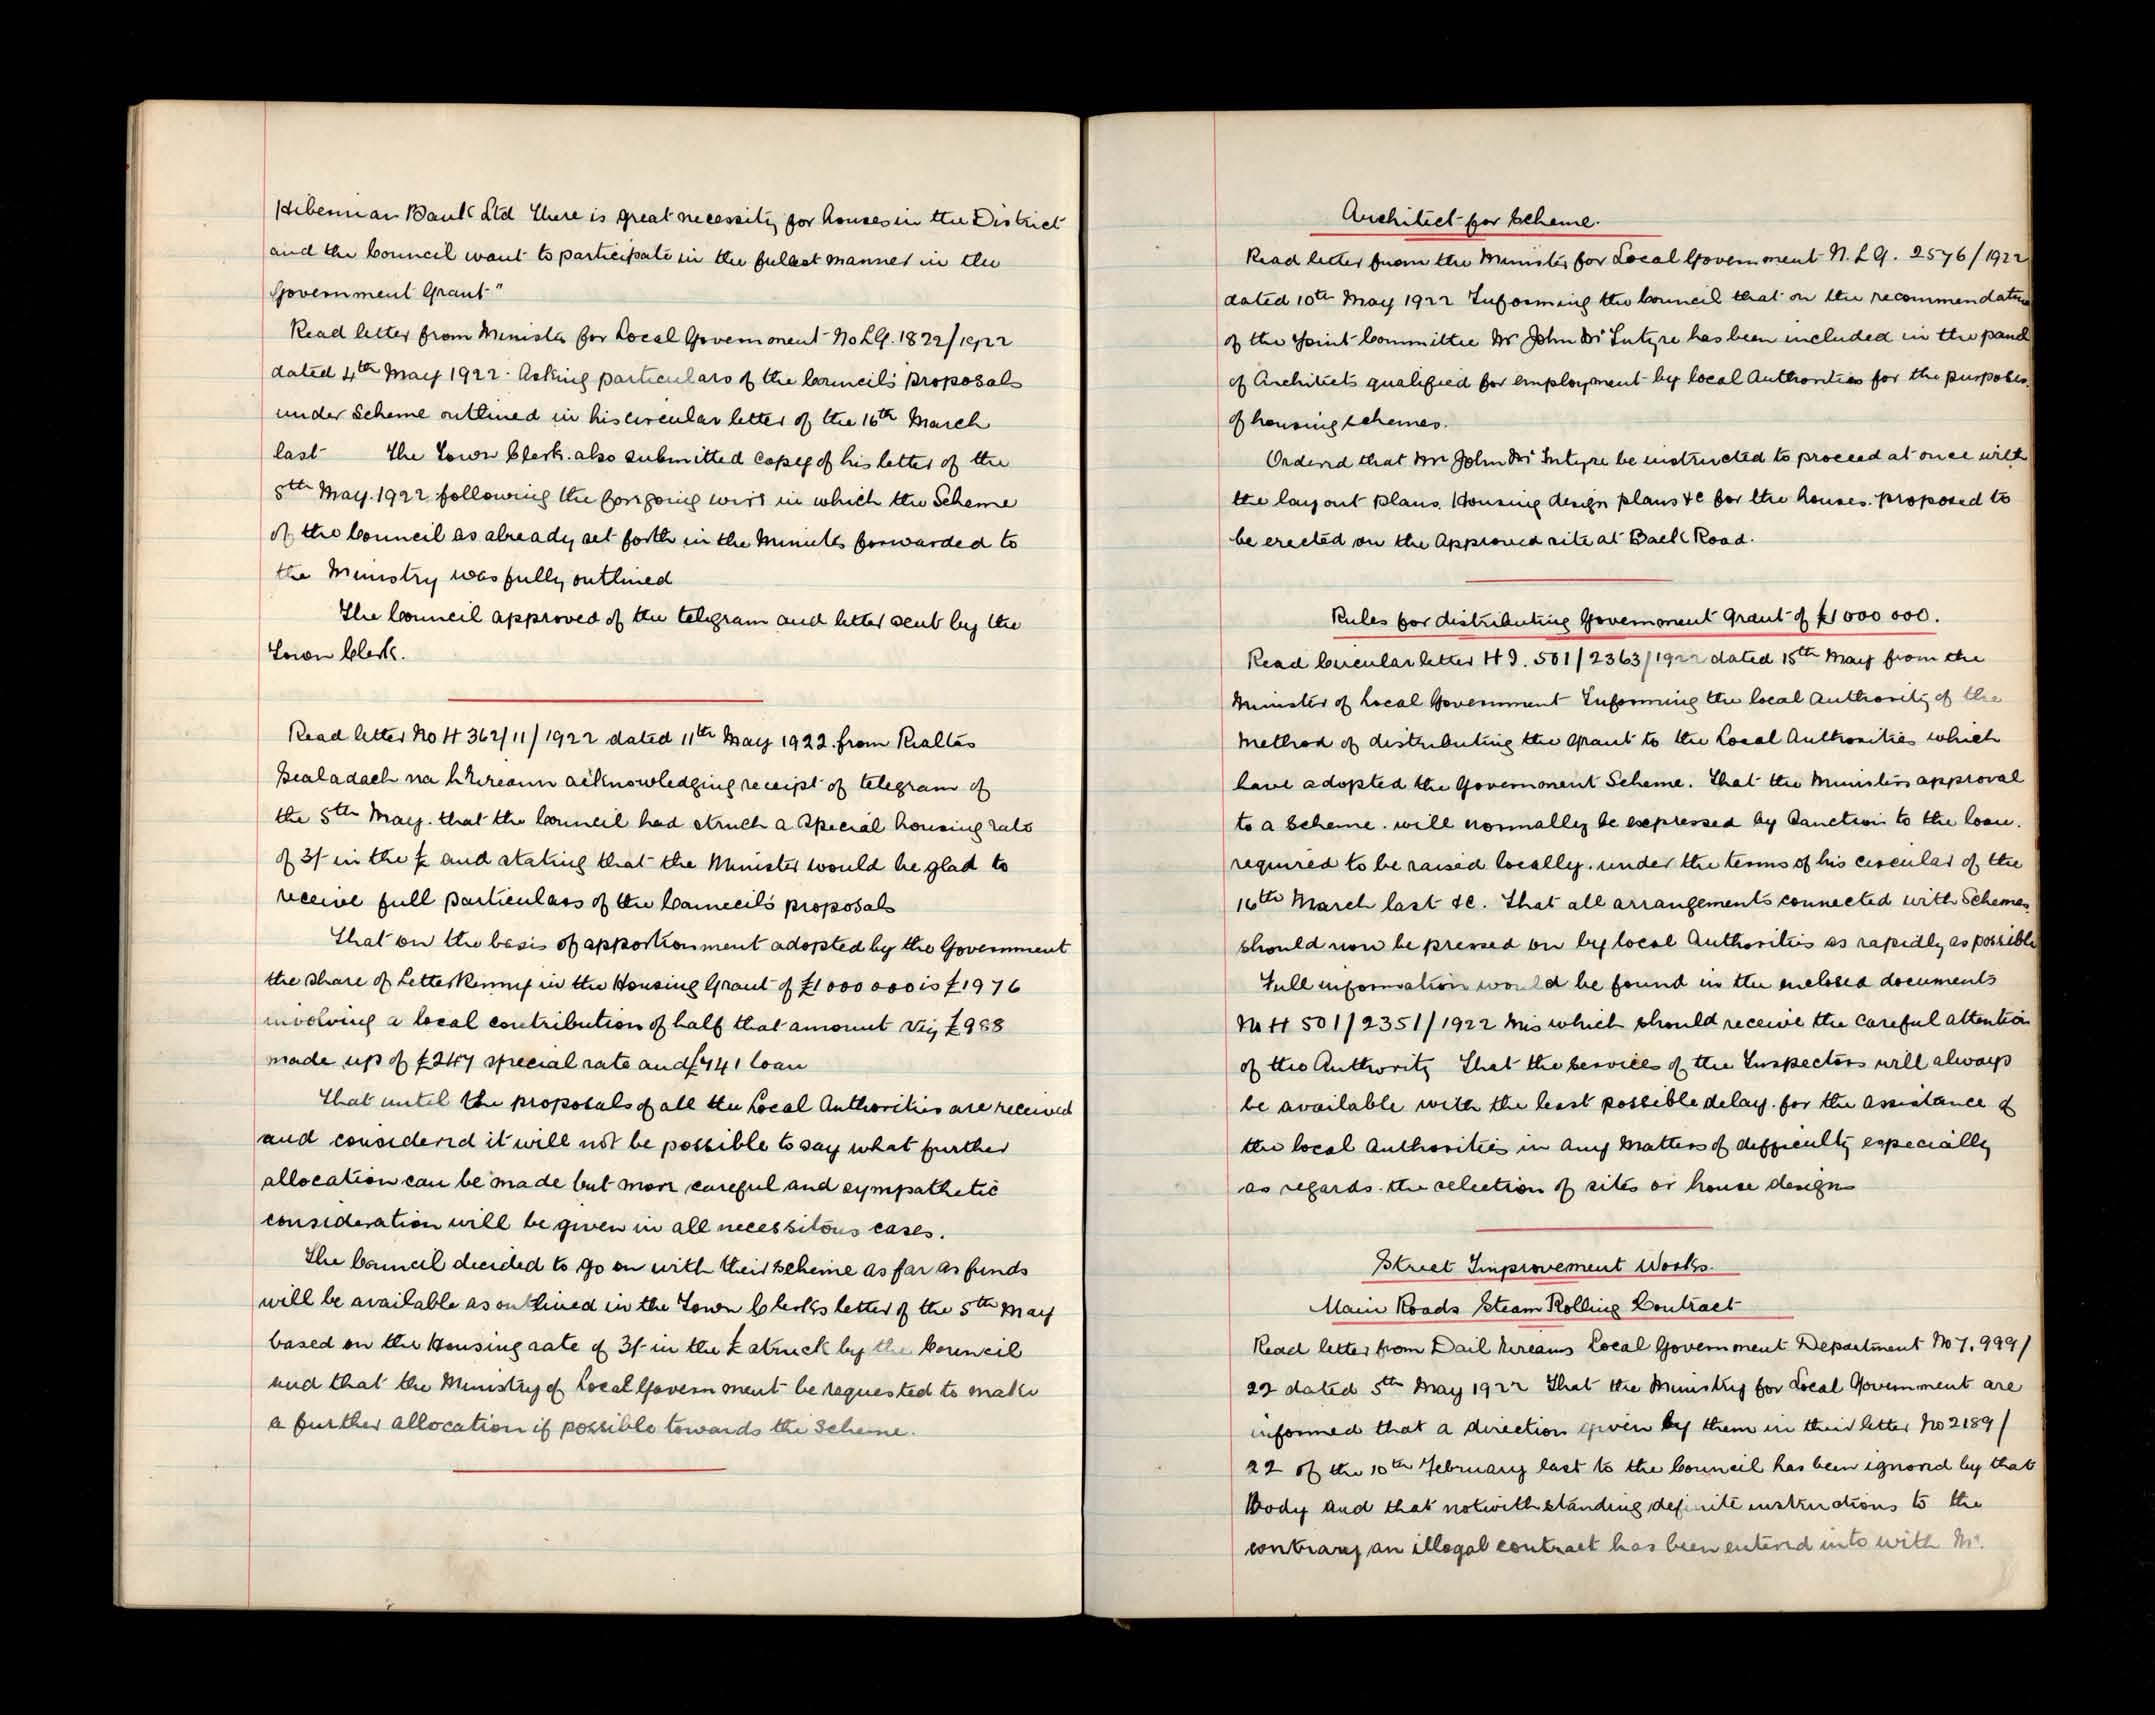 Hibernian Bank Ltd There is great necessity for houses in the District
and the Council want to participate in the fullest manner in the
Government Grant"
Read letter from Minister for Local Government No LG. 1822/1922
dated 4th May 1922. Asking particulars of the Council's proposals
under Scheme outlined in his circular letter of the 16th March
last The Town Clerk. also submitted copy of his letter of the
5th May. 1922 following the forgoing wire in which the Scheme
of the Council as already set forth in the Minutes forwarded to
the Ministry was fully outlined
The Council approved of the telegram and letter sent by the
Town Clerk.
Read letter No H 362/11/1922 dated 11th May 1922. from Rialtas
Sealadach na hEireann acknowledging receipt of telegram of
the 5th May. that the Council had struck a Special housing rate
of 3/- in the £ and stating that the Minister would be glad to
receive full particulars of the Council's proposals
That on the basis of apportionment adopted by the Government
the share of Letterkenny in the Housing Grant of £1000 000 is £1976
involving a local contribution of half that amount viz £988
made up of £247 special rate and £741 loan
That until the proposals of all the Local Authorities are received
and considered it will not be possible to say what further
allocation can be made but more careful and sympathetic
consideration will be given in all necessitous cases.
The Council decided to go on with their scheme as far as funds
will be available as outlined in the Town Clerks letter of the 5th May
based on the Housing rate of 3/- in the £ struck by the Council
and that the Ministry of Local Government be requested to make
a further allocation if possible towards the Scheme.
Architect for Scheme.
Read letter from the Minister for Local Government N. LG. 2576/1922
dated 10th May 1922 Informing the Council that on the recommendation
of the Joint Committee Mr John Mc Intyre has been included in the panel
of Architects qualified for employment by local Authorities for the purposes.
of housing schemes.
Ordered that Mr John Mc Intyre be instructed to proceed at once with
the layout plans. Housing design plans &c for the houses. proposed to
be erected on the Approved site at Back Road.
Rules for distributing Government Grant of £1000 000.
Read Circular letter H I. 501/2363/1922 dated 15th May from the
Minister of Local Government Informing the local Authority of the
Method of distributing the Grant to the Local Authorities which
have adopted the Government Scheme. That the Ministers approval
to a Scheme. will normally be expressed by Sanction to the loan.
required to be raised locally. under the terms of his circular of the
16th March last &c. That all arrangements connected with Schemes.
should now be pressed on by local Authorities as rapidly as possible
Full information would be found in the enclosed documents
No H 501/2351/1922 Mis which should receive the careful attention
of the Authority That the services of the Inspectors will always
be available with the least possible delay. for the assistance of
the local Authorities in any Matters of difficulty especially
as regards. the selection of sites or house designs
Street Improvement Works.
Main Roads Steam Rolling Contract
Read letter from Dail Eireann Local Government Department No 7. 999/
22 dated 5th May 1922 That the Ministry for Local Government are
informed that a direction given by them in their letter No 2189/
22 of the 10th February last to the Council has been ignored by that
Body and that notwithstanding definite instructions to the
contrary an illegal contract has been entered into with Mr.